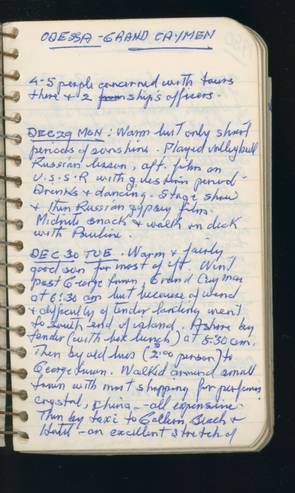 ODESSA - GRAND CAYMEN
4-5 people concerned with tours
there & 2 ship's officers.
DEC 29 MON: Warm but only short
periods of sunshine. Played volleyball
Russian lesson, aft. film on
U.S.S.R with question period.
Drinks & dancing. Stage show
& Russian gypsy film.
Midnite snack & walk on deck
with Pauline.
DEC 30 TUE. Warm & fairly
good sun for most of aft. Went
past George town, Grand Cayman
at 6:30 am but because of wind
& difficulty of tender landing went
to south end of island. Ashore by
tender (with box lunch) at
Then by old bus (2.00 person) to
Georgetown. Walked around small
town with most shopping for perfume,
crystal, china - all expensive.
Then by taxi to Beach &
Hotel - an excellent stretch of